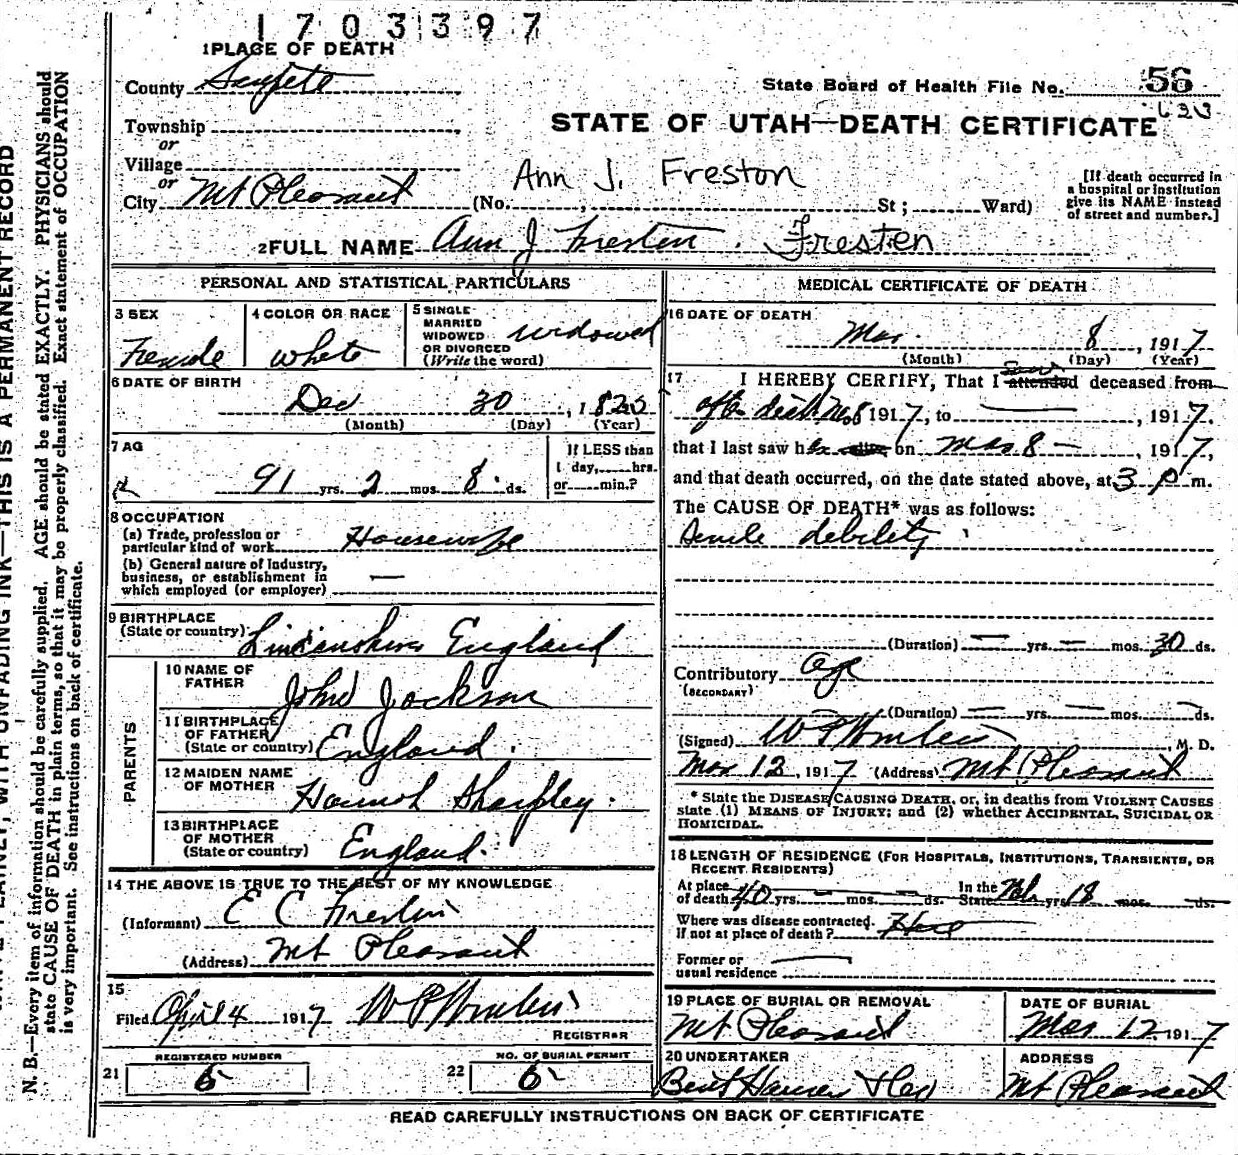 1703397
1 PLACE OF DEATH
County Sanpete
State Board of Health File No. 56
STATE OF UTAH—DEATH CERTIFICATE
Township
or
Village
or
City Mt Pleasant (No. , St ; Ward)
Ann J. Freston
[If death occurred in
a hospital or institution
give its NAME instead
of street and number.]
2 FULL NAME Ann J Freston . Fresten
PERSONAL AND STATISTICAL PARTICULARS
3 SEX
Female
4 COLOR OR RACE
white
5 SINGLE
MARRIED
WIDOWED
OR DIVORCED
(Write the word)
widowed
6 DATE OF BIRTH
Dec 30 , 1825
(Month) (Day) (Year)
7 AG
91 yrs. 2 mos. 8 ds.
If LESS than
1 day, hrs.
or min.?
8 OCCUPATION
(a) Trade, profession or
particular kind of work Housewife
(b) General nature of Industry,
business, or establishment in
which employed (or employer) —
9 BIRTHPLACE
(State or country) England
PARENTS
10 NAME OF
FATHER John Jackson
11 BIRTHPLACE
OF FATHER
(State or country) England.
12 MAIDEN NAME
OF MOTHER Hannah Sharpley.
13 BIRTHPLACE
OF MOTHER
(State or country) England.
14 THE ABOVE IS TRUE TO THE BEST OF MY KNOWLEDGE
(Informant) E C Freston
(Address) Mt Pleasant
15
Filed April 4 1917
REGISTRAR
REGISTERED NUMBER
21 6
NO. OF BURIAL PERMIT
22 6
MEDICAL CERTIFICATE OF DEATH
16 DATE OF DEATH
Mar. 8 , 1917
(Month) (Day) (Year)
17 I HEREBY CERTIFY, That I saw attended deceased from
after death Mar 8 1917, to — , 1917.
that I last saw her alive on Mar. 8 — , 1917,
and that death occurred, on the date stated above, at 3 p m.
The CAUSE OF DEATH* was as follows:
Senile debility
(Duration) — yrs. — mos. 30 ds.
Contributory age
(SECONDARY)
(Duration) — yrs. — mos. — ds.
(Signed) , M. D.
Mar 12, 1917 (Address) Mt Pleasant
* State the DISEASE CAUSING DEATH, or, in deaths from VIOLENT CAUSES
state (1) MEANS OF INJURY; and (2) whether ACCIDENTAL, SUICIDAL OR
HOMICIDAL.
18 LENGTH OF RESIDENCE (FOR HOSPITALS, INSTITUTIONS, TRANSIENTS, OR
RECENT RESIDENTS)
At place
of death 40 yrs. — mos. — ds. In the
State yrs. mos. ds.
Where was disease contracted.
If not at place of death? Here
Former or
usual residence —
19 PLACE OF BURIAL OR REMOVAL
Mt Pleasant
DATE OF BURIAL
Mar. 12 1917
20 UNDERTAKER
ADDRESS
Mt Pleasant
READ CAREFULLY INSTRUCTIONS ON BACK OF CERTIFICATE
WITH UNFADING INK—THIS IS A PERMANENT RECORD
N. B.—Every item of information should be carefully supplied. AGE should be stated EXACTLY. PHYSICIANS should
state CAUSE OF DEATH in plain terms, so that it may be properly classified. Exact statement of OCCUPATION
is very important. See instructions on back of certificate.